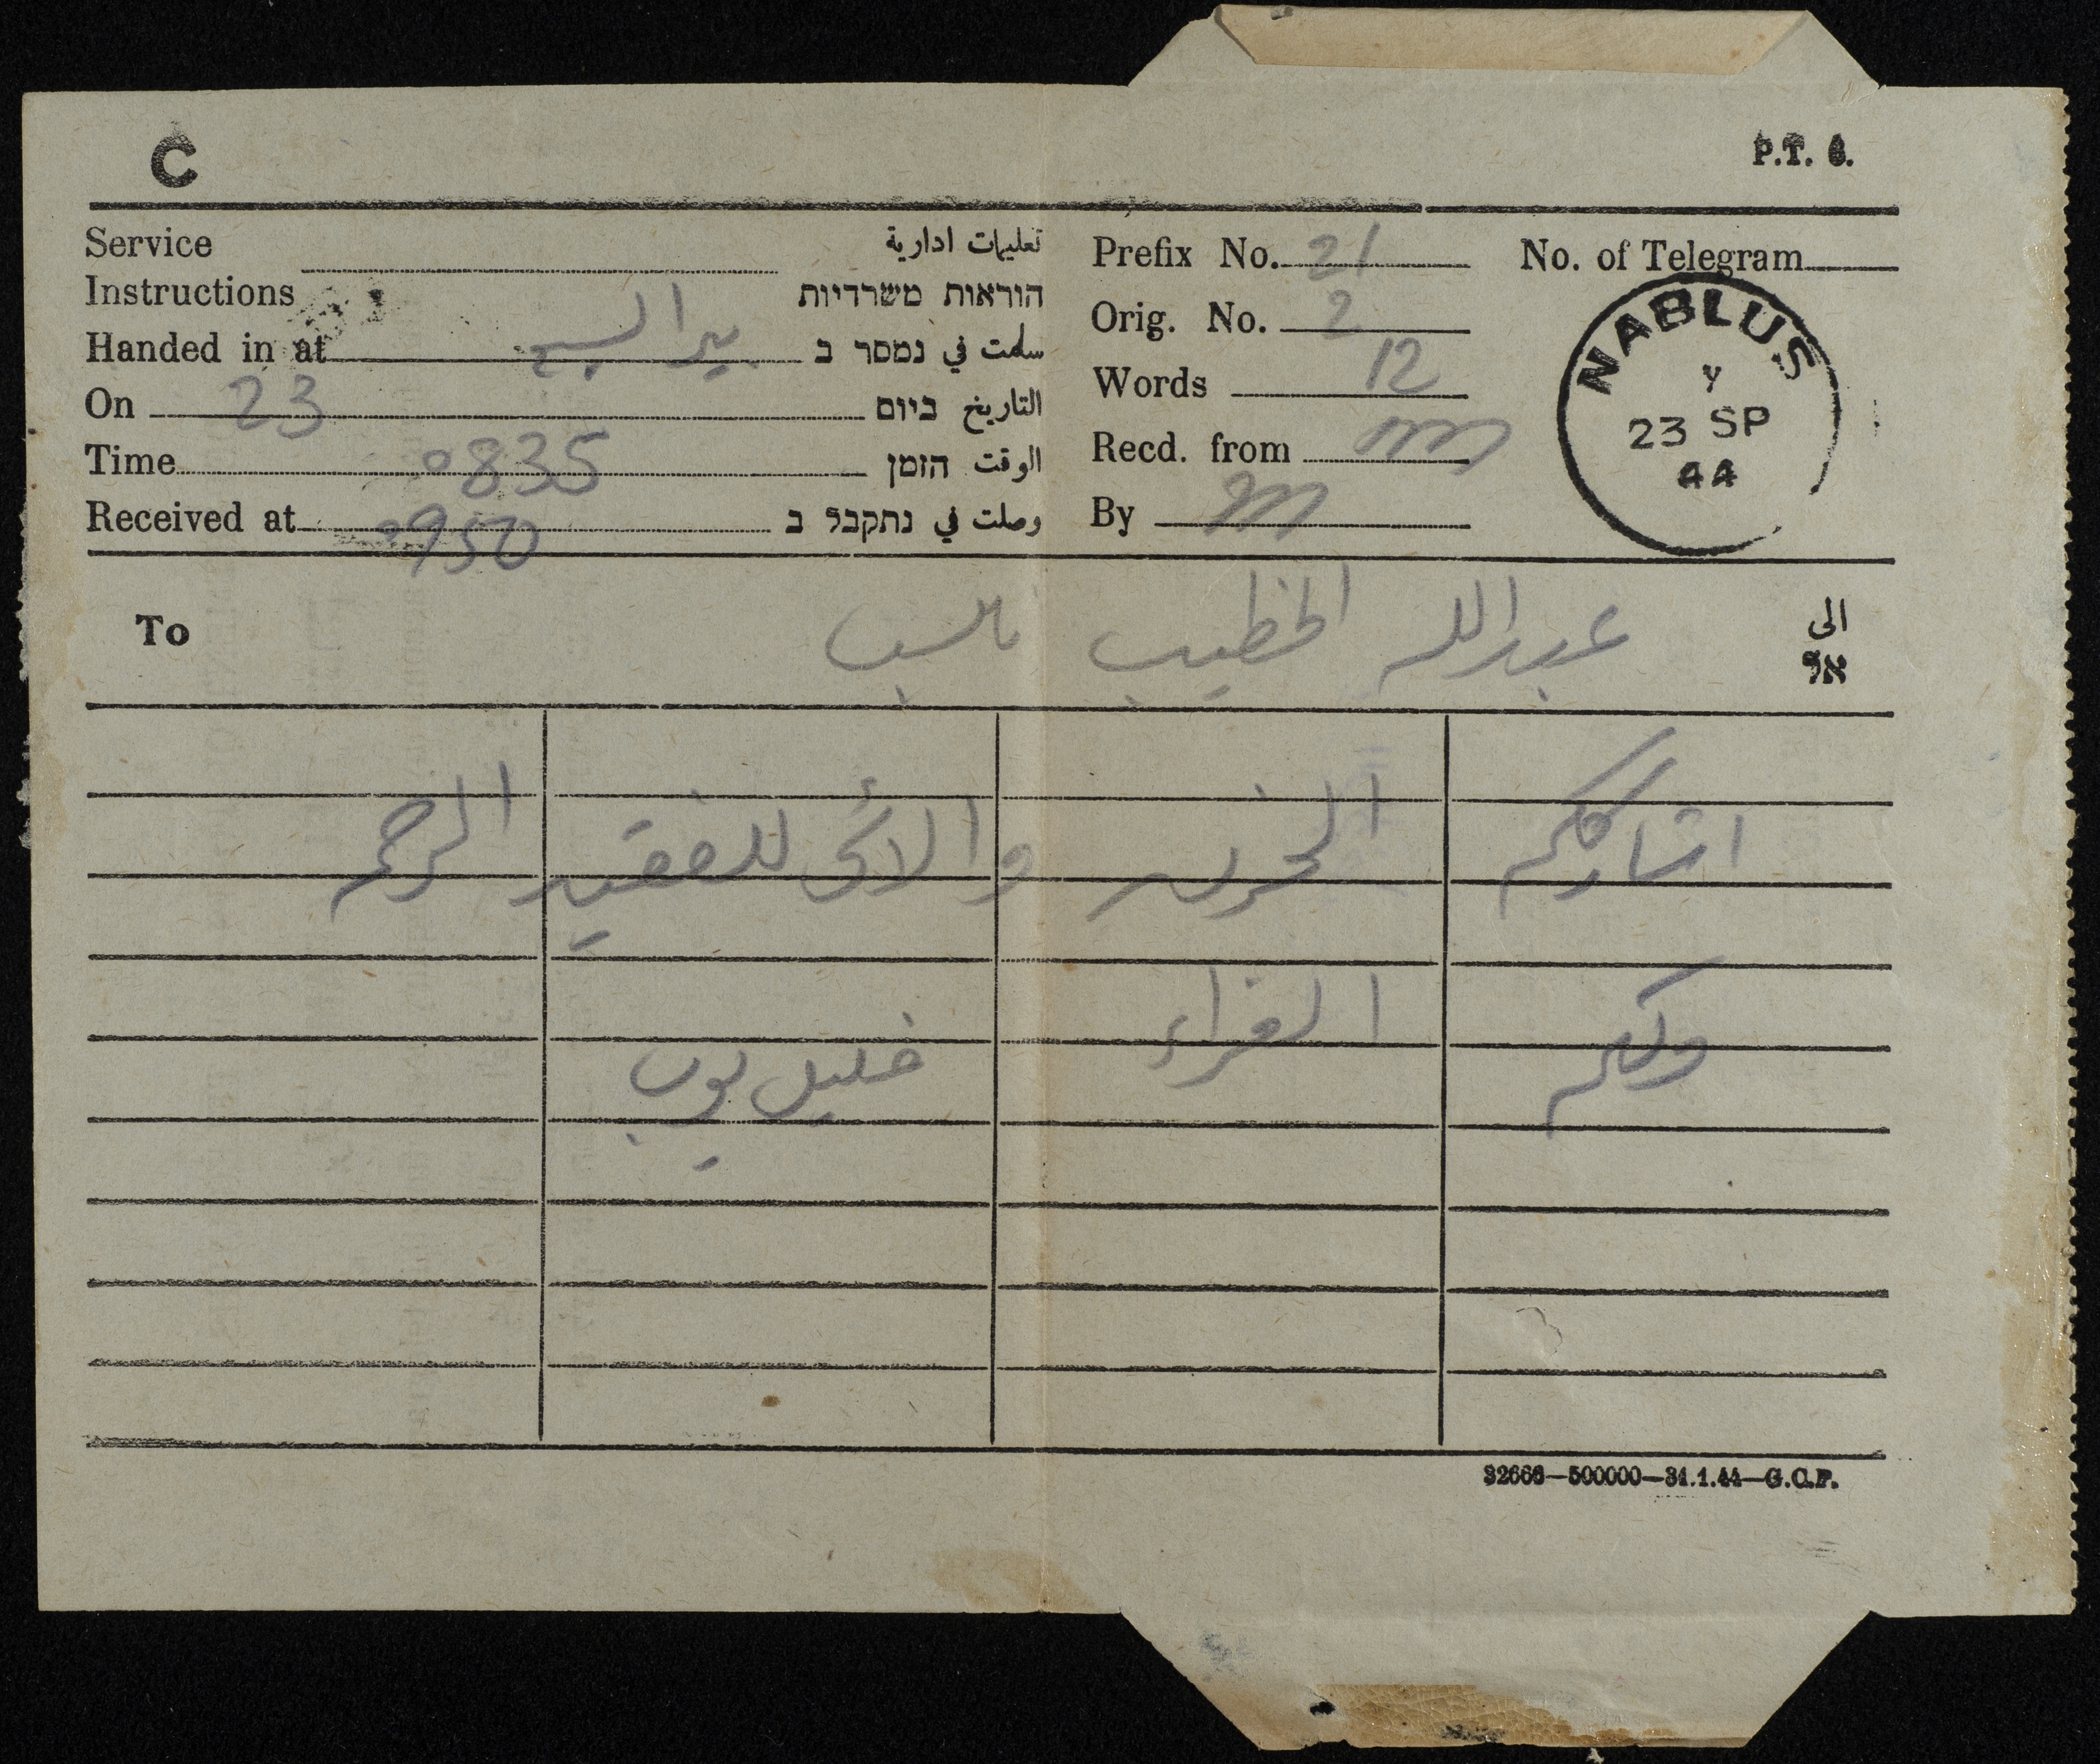 C
P.T. 6.
Service
Instructions
تعليمات ادارية
הוראות משרדיות
Handed in at بير السبع سلمت في נמסר ב
On 23 التاريخ ביום
Time 0835 الوقت הזמן
Received at 0950 وصلت في נתקבל ב
Prefix No. 21
Orig. No. 2
Words 12
Recd. from
By
No. of Telegram
NABLUS
Y
23 SP
44
To
عبدالله الخطيب نابلس
الى
אל
اشارككم الحزن والاسى للفقيد الرحمه
ولكم العزاء
خليل
32666—500000—31.1.44—G.O.P.